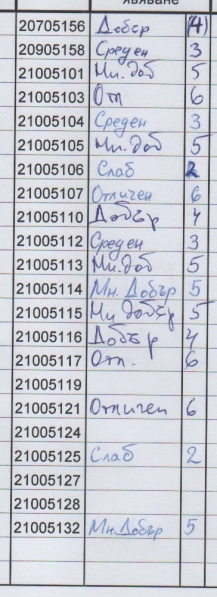 явяване
20705156 Добър (4)
20905158 Среден 3
21005101 Мн. доб 5
21005103 Отл 6
21005104 Среден 3
21005105 Мн. доб 5
21005106 Слаб 2
21005107 Отличен 6
21005110 Добър 4
21005112 Среден 3
21005113 Мн. доб 5
21005114 Мн. Добър 5
21005115 Мн добър 5
21005116 Добър 4
21005117 Отл. 6
21005119
21005121 Отличен 6
21005124
21005125 Слаб 2
21005127
21005128
21005132 Мн. Добър 5